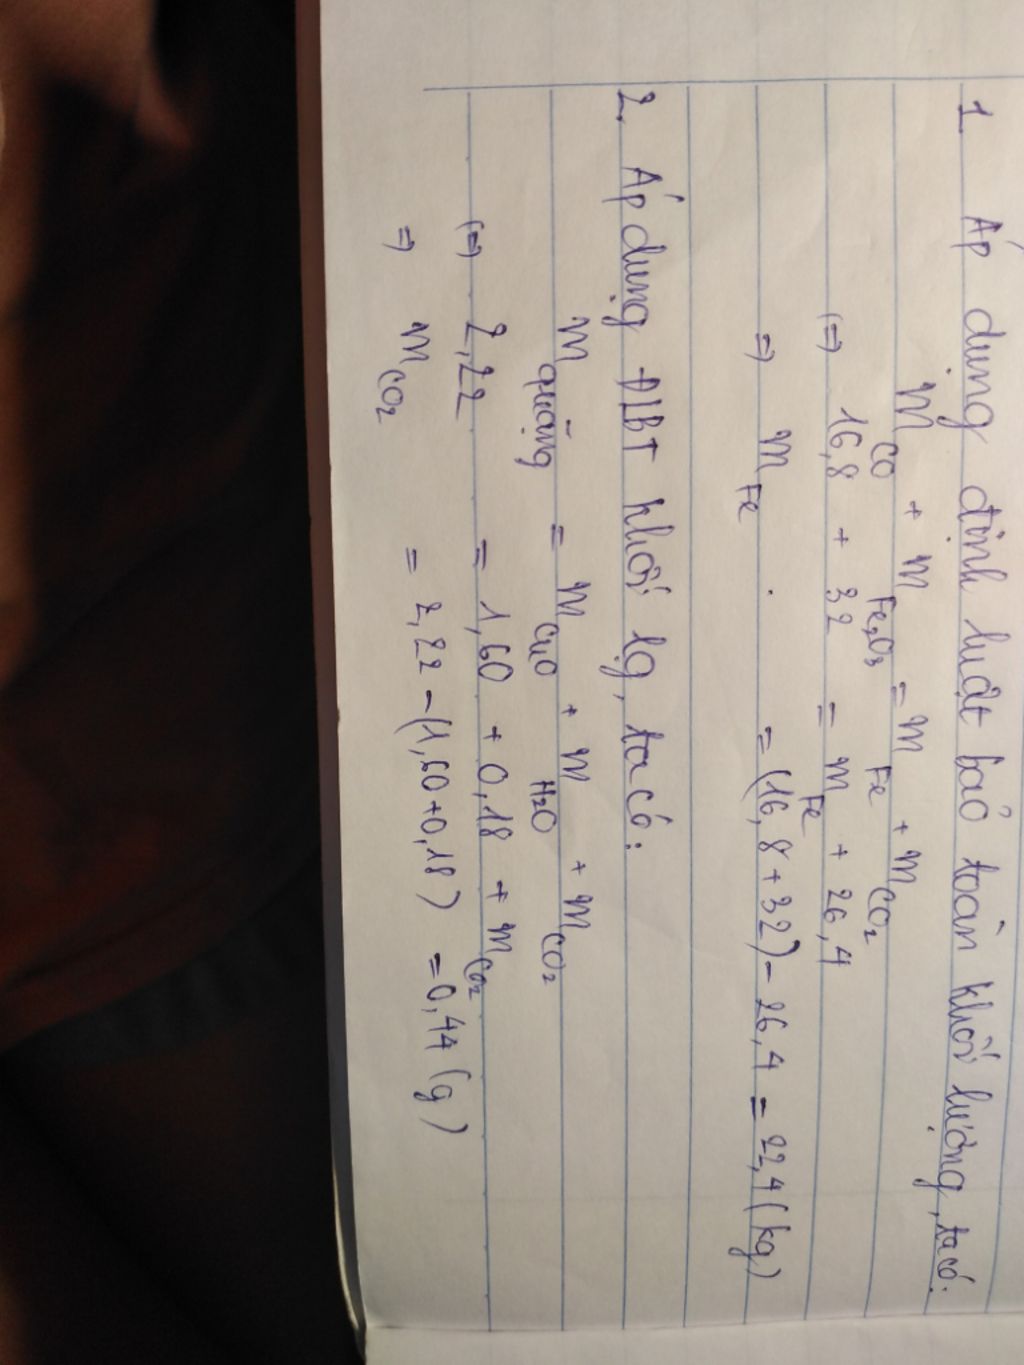 1 Áp dụng định luật bảo toàn khối lượng, ta có:
m CO + m Fe2O3 = m Fe + m CO2
(=) 16,8 + 32 = m Fe + 26,4
=) m Fe = (16,8 + 32) - 26,4 = 22,4 (kg)
2, Áp dụng ĐLBT khối lg, ta có:
m quặng = m CuO + m H2O + m CO2
(=) 2,22 = 1,60 + 0,18 + m CO2
=) m CO2 = 2,22 - (1,60+0,18) = 0,44 (g)